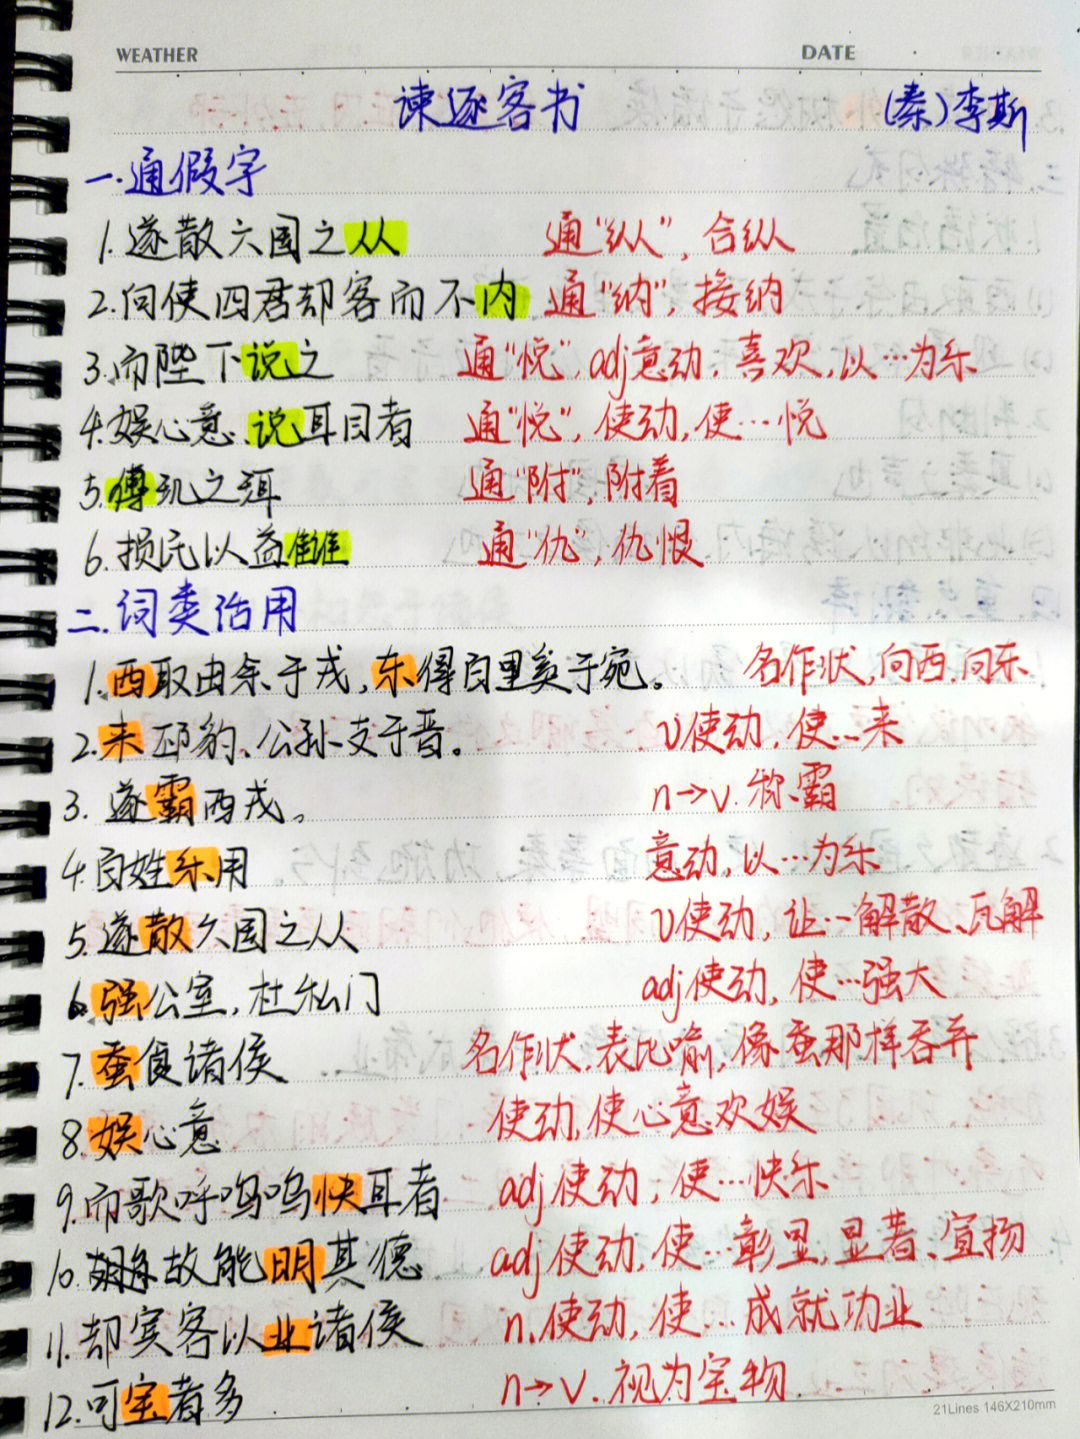 WEATHER DATE
谏逐客书 (秦)李斯
一.通假字
1.遂散六国之从 通“纵”,合纵
2.向使四君却客而不内 通“纳”,接纳
3.而陛下说之 通“悦”,adj意动,喜欢,以…为乐
4.娱心意、说耳目者 通“悦”,使动,使…悦
5.傅玑之珥 通“附”,附着
6.损民以益雠 通“仇”,仇恨
二.词类活用
1.西取由余于戎,东得百里奚于宛。 名作状,向西,向东
2.来邳豹、公孙支于晋。 v使动,使…来
3.遂霸西戎。 n→v.称霸
4.百姓乐用 意动,以…为乐
5.遂散六国之从 v使动,让…解散、瓦解
6.强公室,杜私门 adj使动,使…强大
7.蚕食诸侯 名作状,表比喻,像蚕那样吞并
8.娱心意 使动,使心意欢娱
9.而歌呼呜呜快耳者 adj使动,使…快乐
10.故能明其德 adj使动,使…彰显,显著、宣扬
11.却宾客以业诸侯 n.使动,使…成就功业
12.可宝者多 n→v.视为宝物
21Lines 146X210mm